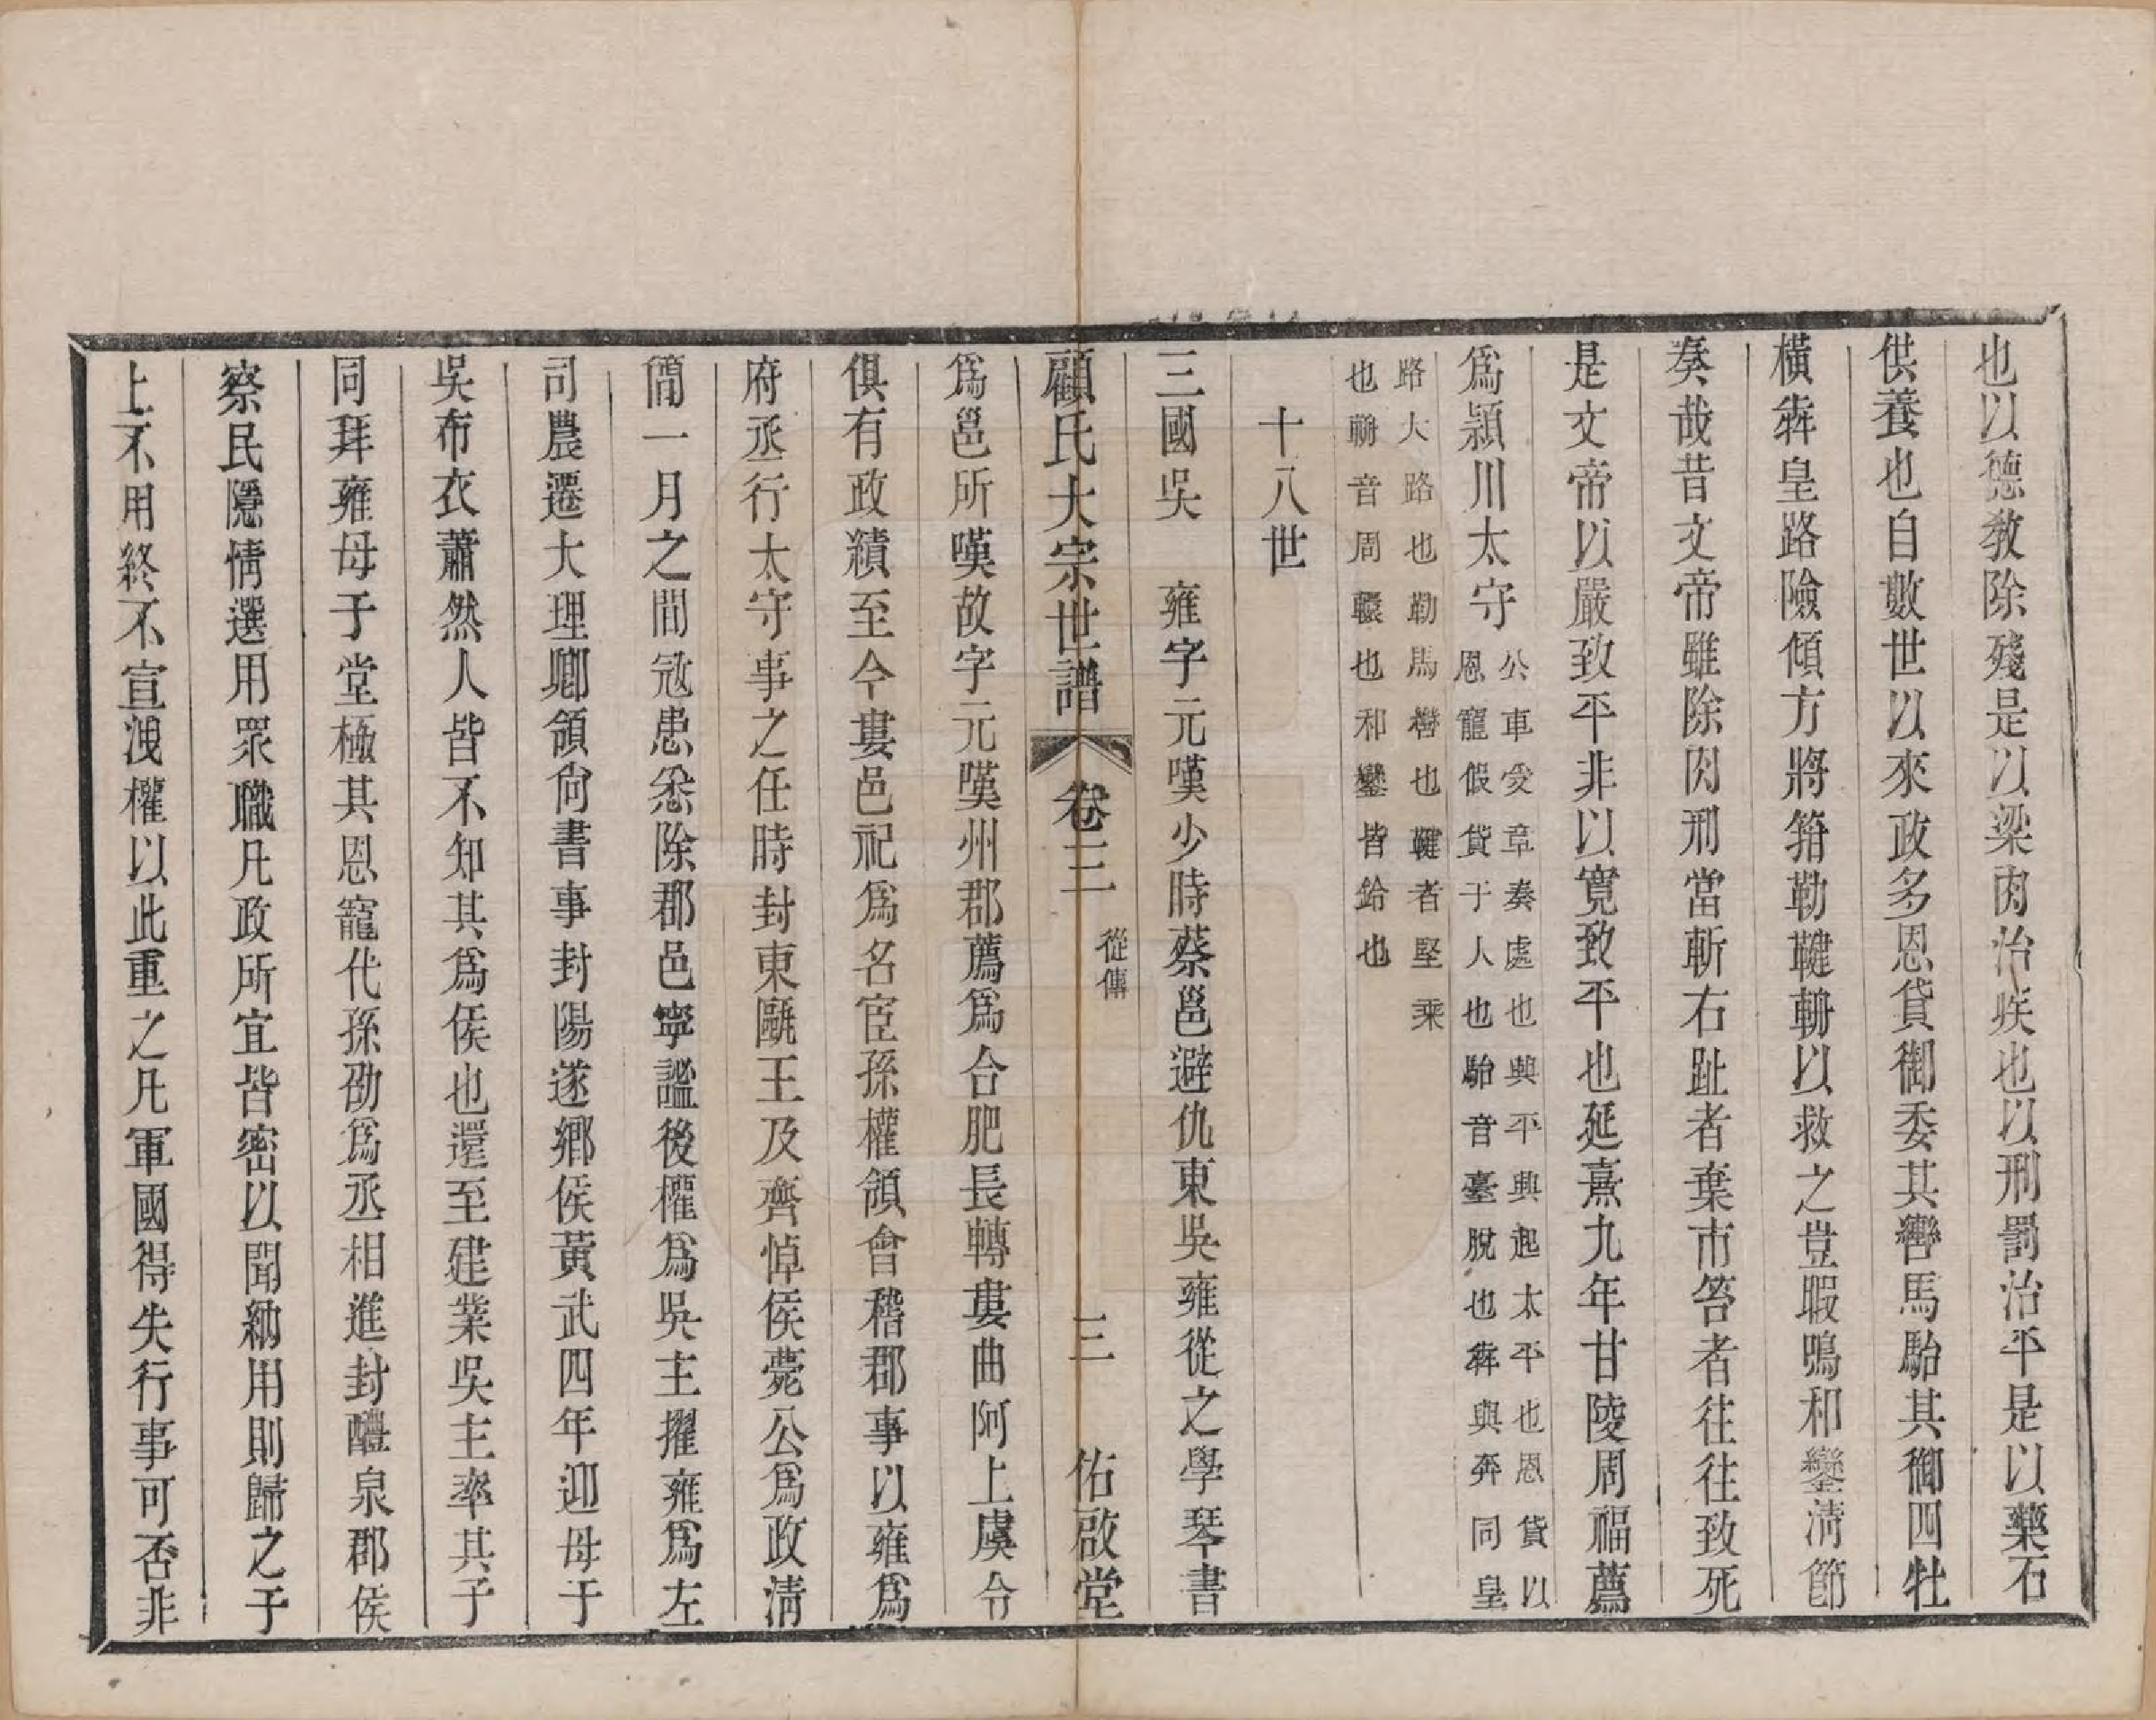 也以德敎除殘是以梁肉治疾也以刑罰治平是以藥石
供養也自數世以來政多恩貸御委其轡馬駘其銜四牡
橫犇皇路險傾方將箝勒鞬輈以救之豈暇鳴和鑾清節
奏哉昔文帝雖除肉刑當斬右趾者棄市笞者往往致死
是文帝以嚴致平非以寬致平也延熹九年甘陵周福薦
爲潁川太守公車受章奏處也興平興起太平也恩貸以
恩寵假貸于人也駘音臺脫也犇與奔同皇
路大路也勒馬轡也鞬者堅乘
也輈音周轅也和鑾皆鈴也
十八世
三國吳　雍字元嘆少時蔡邕避仇東吳雍從之學琴書
顧氏大宗世譜　卷三　從傳　三　佑啟堂
爲邕所嘆故字元嘆州郡薦爲合肥長轉婁曲阿上虞令
俱有政績至今婁邑祀爲名宦孫權領會稽郡事以雍爲
府丞行太守事之任時封東甌王及齊悼侯薨公爲政清
簡一月之間寇患悉除郡邑寧謐後權爲吳主擢雍爲左
司農遷大理卿領尙書事封陽遂鄉侯黃武四年迎母于
吳布衣蕭然人皆不知其爲侯也還至建業吳主率其子
同拜雍母于堂極其恩寵代孫劭爲丞相進封醴泉郡侯
察民隱情選用眾職凡政所宜皆密以聞納用則歸之于
上不用終不宣洩權以此重之凡軍國得失行事可否非